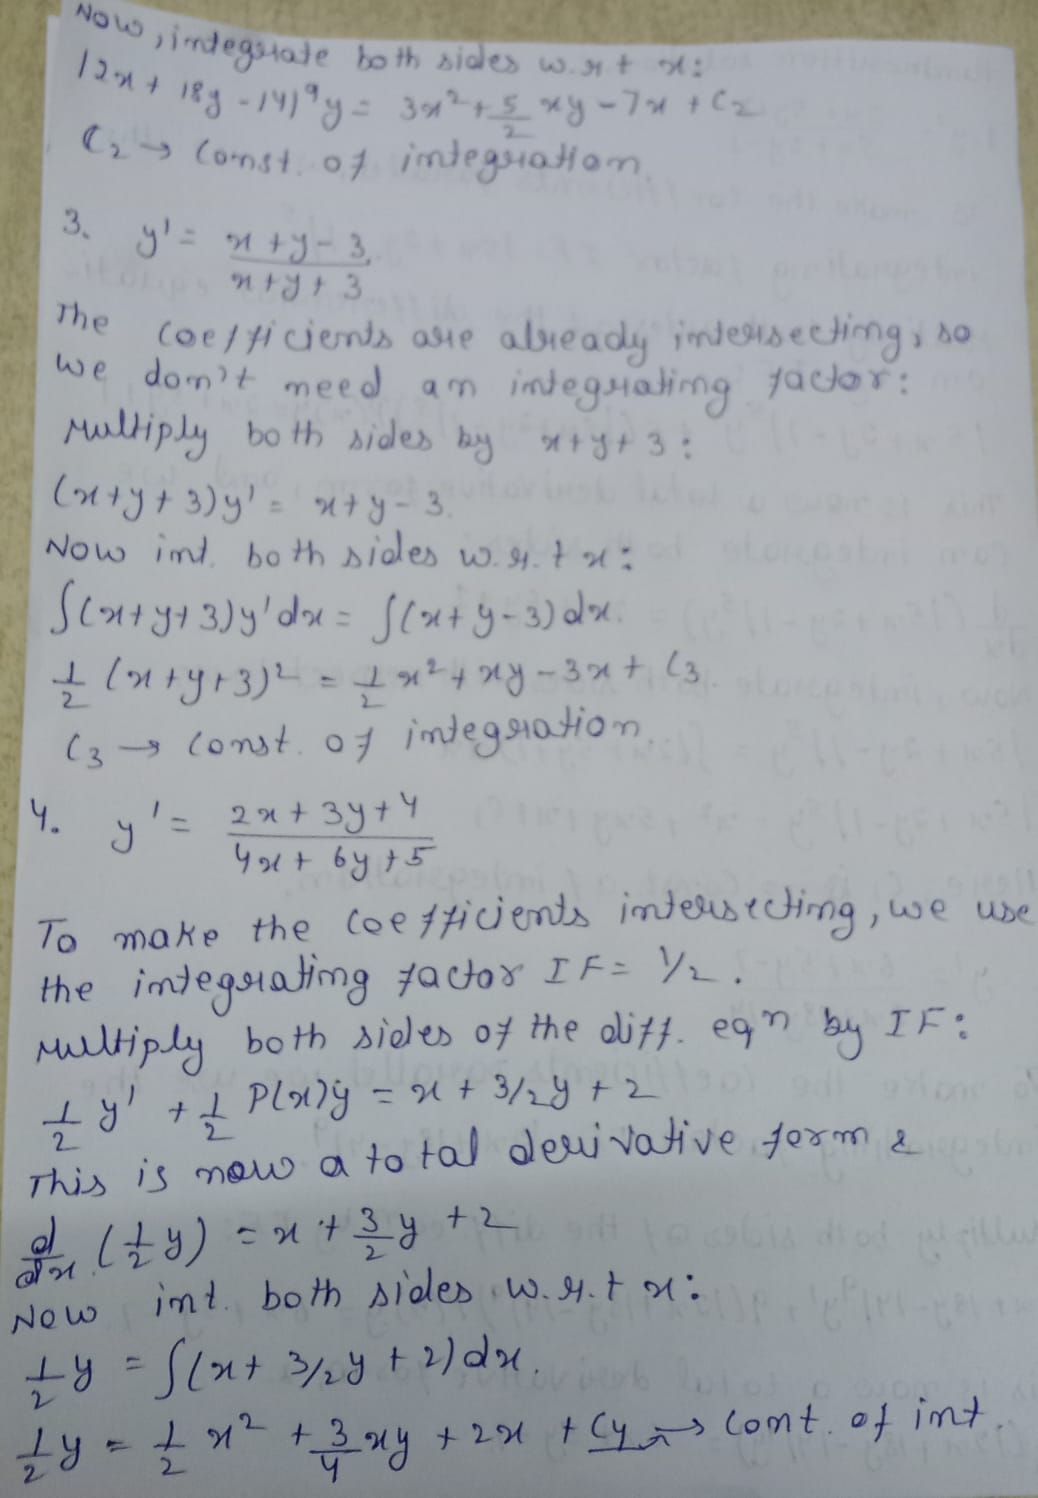 Now, integrate both sides w.r.t x:
12x + 18y - 14)⁹y = 3x² + 5/2 xy - 7x + C₂
C₂ → Const. of integration.
3. y' = x+y-3 / x+y+3
The coefficients are already intersecting, so
we don't need an integrating factor:
Multiply both sides by x+y+3:
(x+y+3)y' = x+y-3.
Now int. both sides w.r.t x:
∫(x+y+3)y'dx = ∫(x+y-3)dx.
1/2 (x+y+3)² = 1/2 x² + xy - 3x + C₃.
C₃ → Const. of integration.
4. y' = 2x+3y+4 / 4x+6y+5
To make the coefficients intersecting, we use
the integrating factor IF = 1/2.
Multiply both sides of the diff. eqⁿ by IF:
1/2 y' + 1/2 P(x)y = x + 3/2y + 2
This is now a total derivative form &
d/dx (1/2 y) = x + 3/2 y + 2
Now int. both sides w.r.t x:
1/2 y = ∫(x + 3/2y + 2)dx.
1/2 y = 1/2 x² + 3/4 xy + 2x + C4 → Cont. of int.